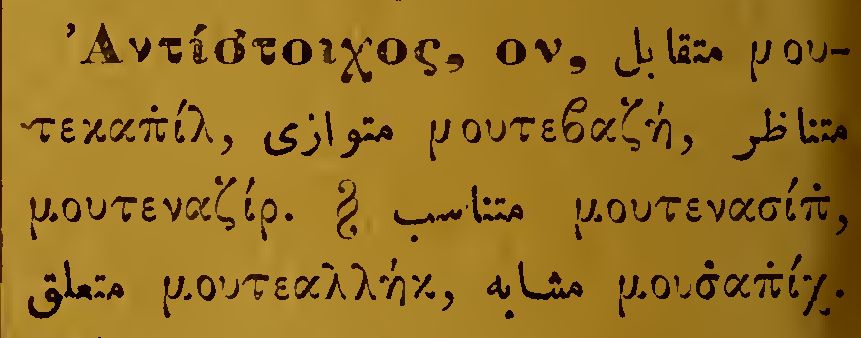 Ἀντίστοιχος, ον, متقابل μου-
τεκαπ̇ίλ, متوازى μουτεβαζή, متناظر
μουτεναζίρ. § متناسب μουτενασίπ̇,
متعلق μουτεαλλήκ, مشابه μουσ̇απ̇ίχ.